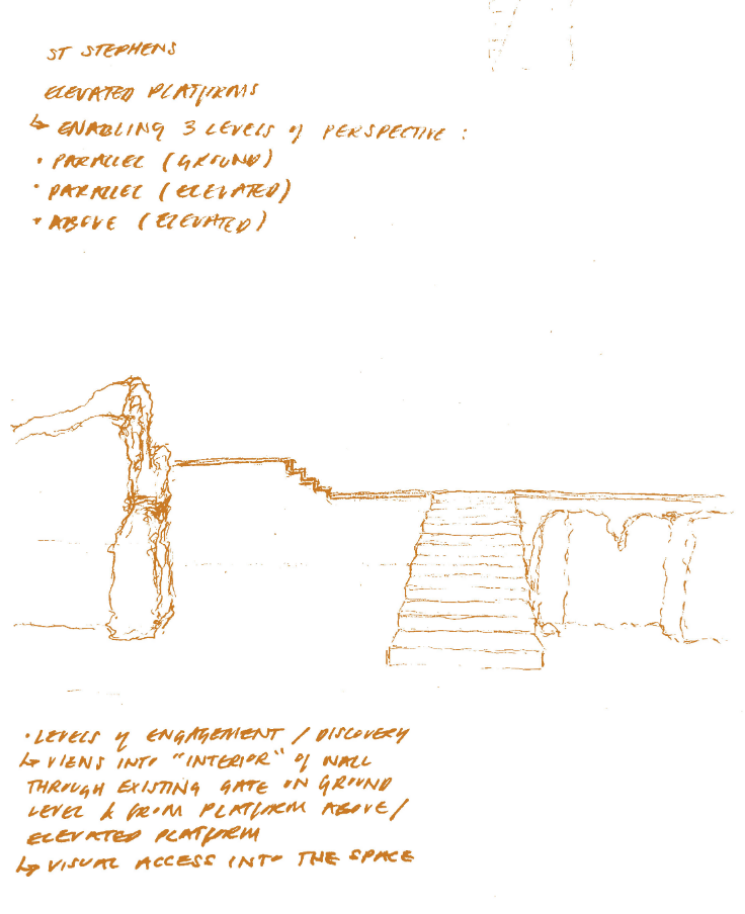 ST STEPHENS
ELEVATED PLATFORMS
↳ ENABLING 3 LEVELS of PERSPECTIVE :
• PARALLEL (GROUND)
• PARALLEL (ELEVATED)
• ABOVE (ELEVATED)
• LEVELS of ENGAGEMENT / DISCOVERY
↳ VIEWS INTO "INTERIOR" of WALL
THROUGH EXISTING GATE ON GROUND
LEVEL & FROM PLATFORM ABOVE /
ELEVATED PLATFORM
↳ VISUAL ACCESS INTO THE SPACE